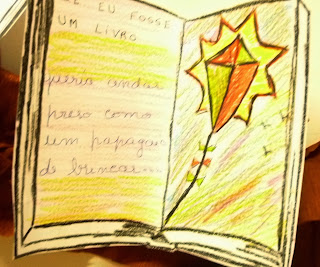 SE EU FOSSE
UM LIVRO
queria andar
preso como
um papagaio
de brincar...